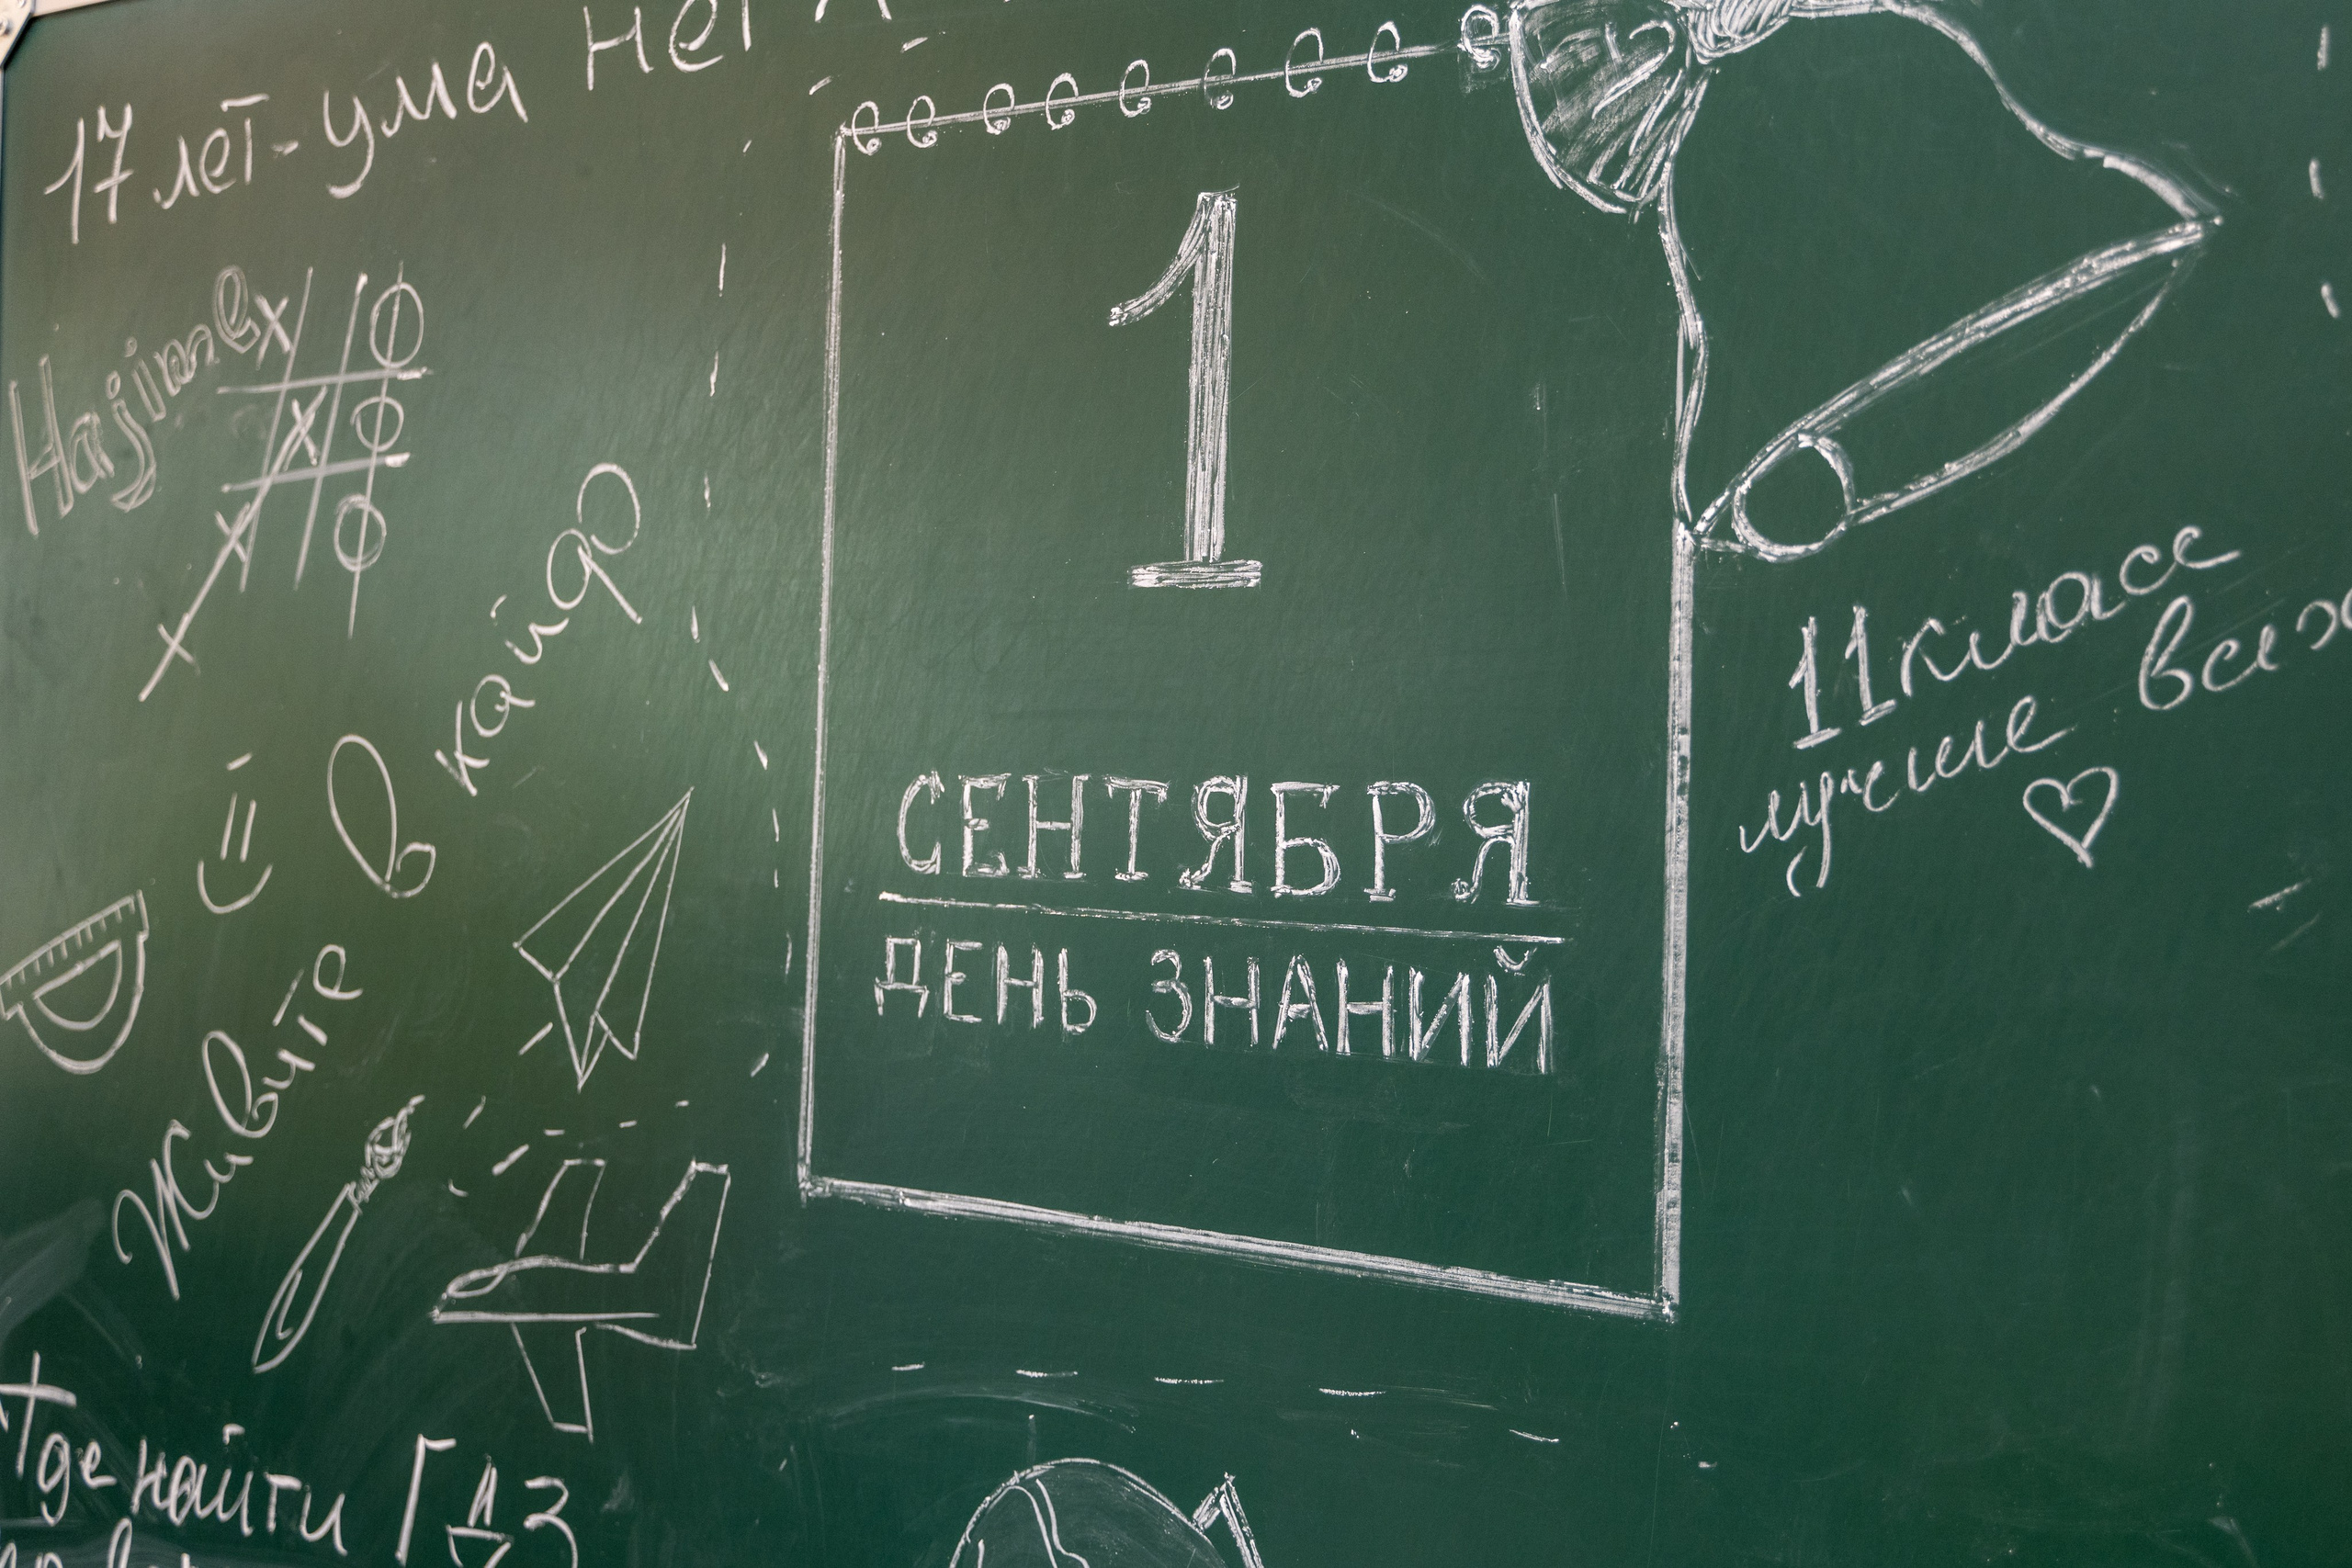 17 лет - ума нет
Hajime
Живите в кайф
1
СЕНТЯБРЯ
ДЕНЬ ЗНАНИЙ
11 класс
лучше всех
где найти ГДЗ